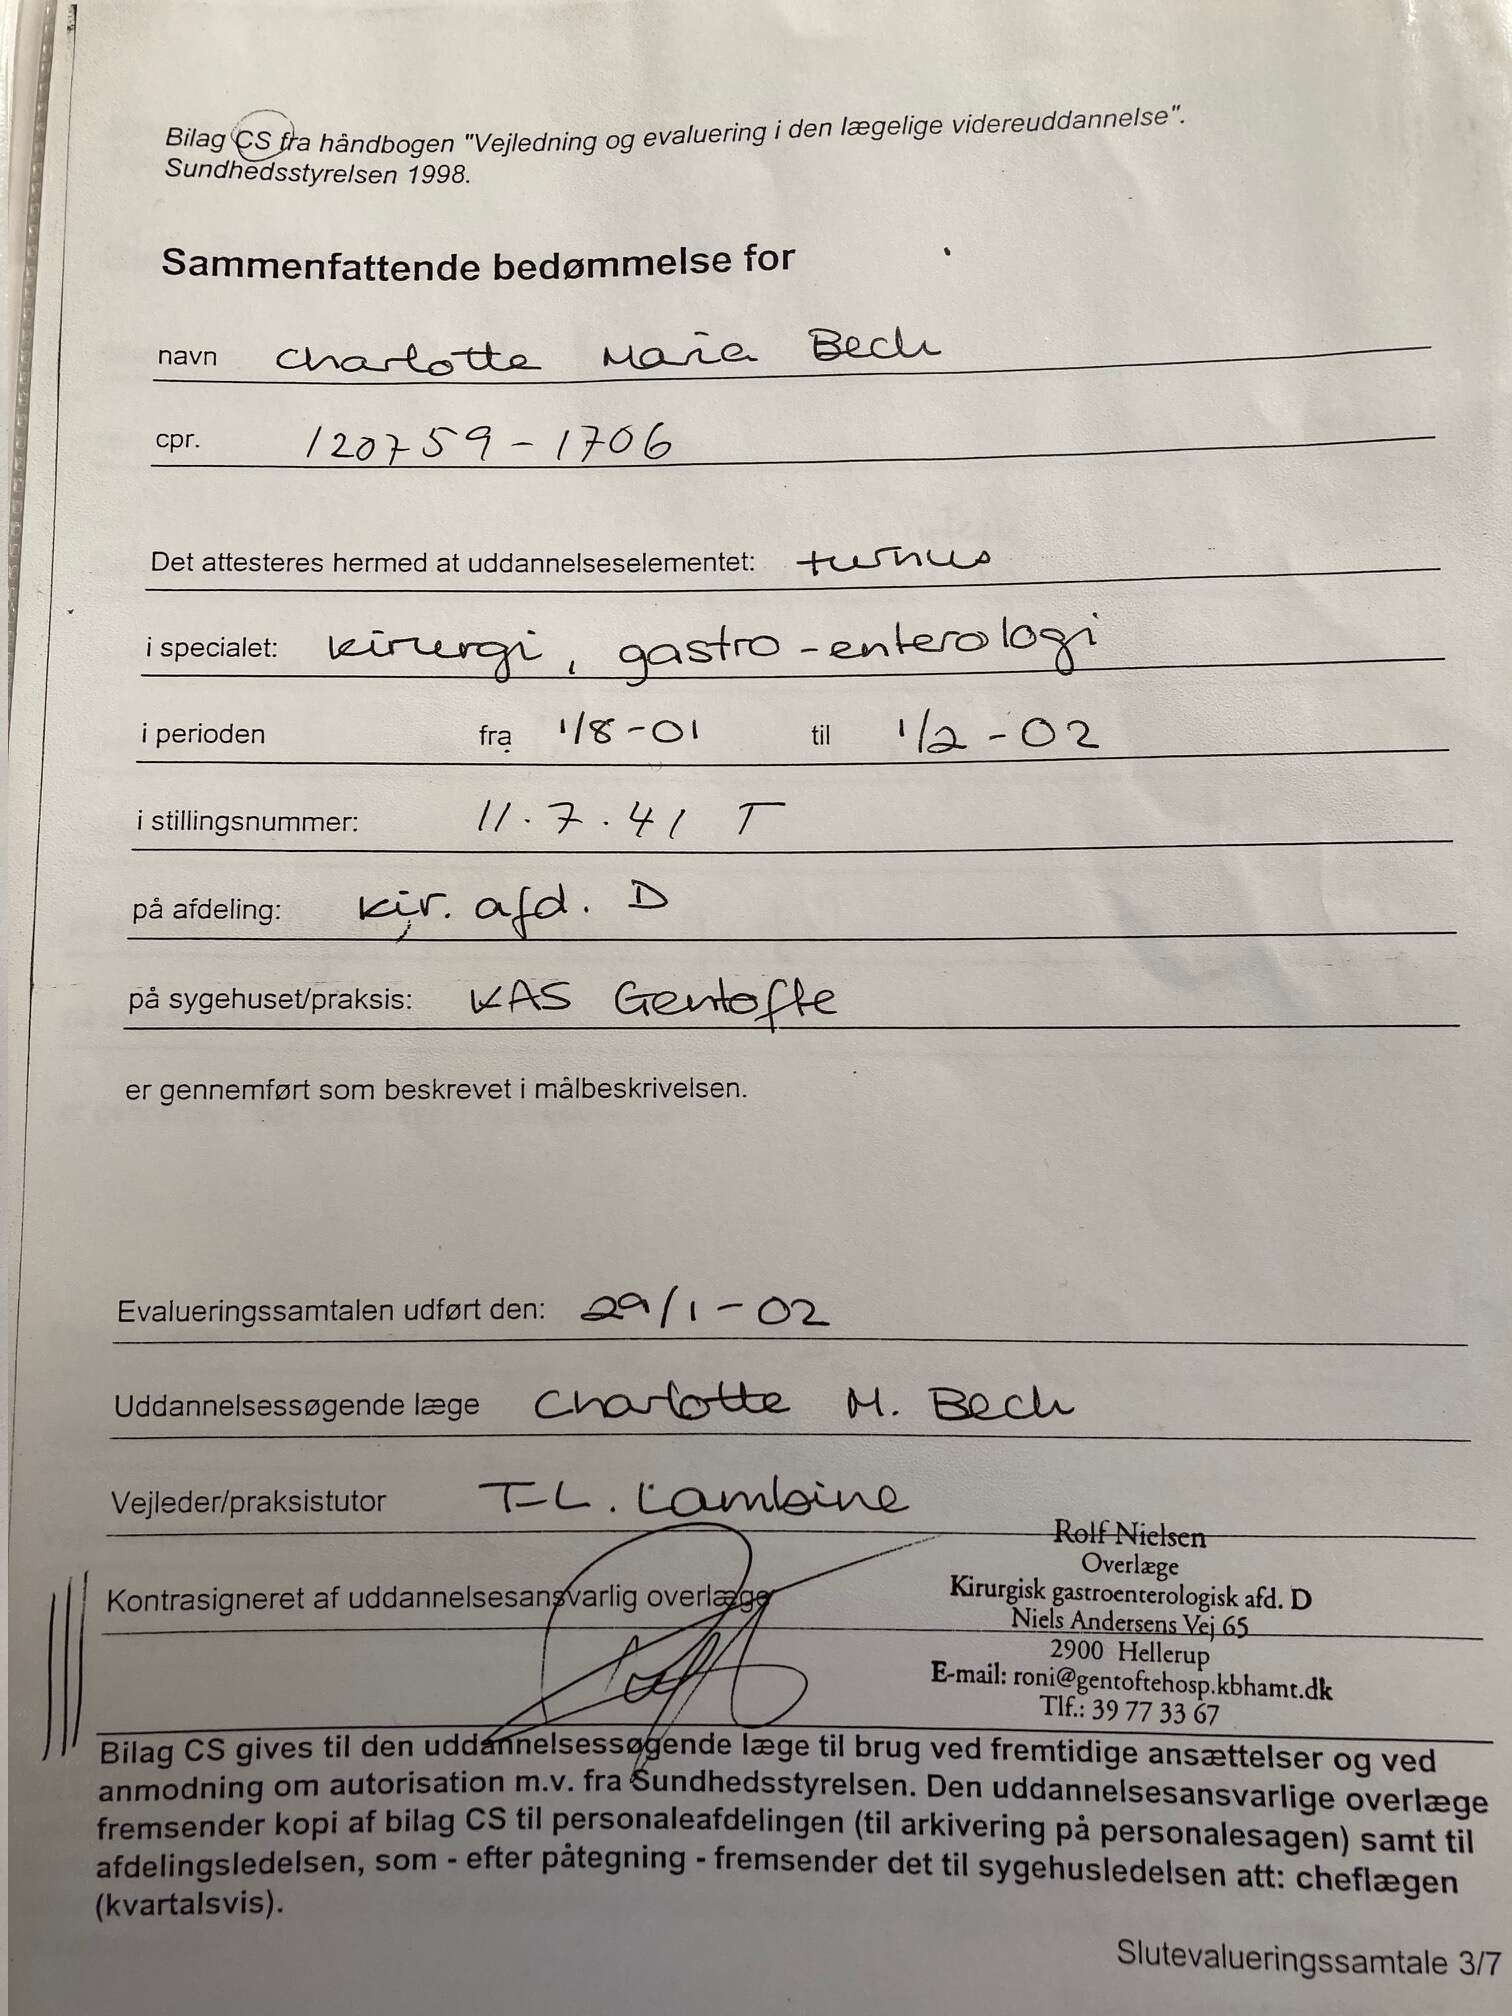 Bilag CS fra håndbogen "Vejledning og evaluering i den lægelige videreuddannelse".
Sundhedsstyrelsen 1998.
Sammenfattende bedømmelse for
navn Charlotte Maria Bech
cpr. 120759-1706
Det attesteres hermed at uddannelseselementet: turnus
i specialet: kirurgi, gastro-enterologi
i perioden fra 1/8-01 til 1/2-02
i stillingsnummer: 11.7.41 T
på afdeling: kir. afd. D
på sygehuset/praksis: KAS Gentofte
er gennemført som beskrevet i målbeskrivelsen.
Evalueringssamtalen udført den: 29/1-02
Uddannelsessøgende læge Charlotte M. Bech
Vejleder/praksistutor T-L.
Rolf Nielsen
Overlæge
Kontrasigneret af uddannelsesansvarlig overlæge
Kirurgisk gastroenterologisk afd. D
Niels Andersens Vej 65
2900 Hellerup
E-mail: roni@gentoftehosp.kbhamt.dk
Tlf.: 39 77 33 67
Bilag CS gives til den uddannelsessøgende læge til brug ved fremtidige ansættelser og ved
anmodning om autorisation m.v. fra Sundhedsstyrelsen. Den uddannelsesansvarlige overlæge
fremsender kopi af bilag CS til personaleafdelingen (til arkivering på personalesagen) samt til
afdelingsledelsen, som - efter påtegning - fremsender det til sygehusledelsen att: cheflægen
(kvartalsvis).
Slutevalueringssamtale 3/7